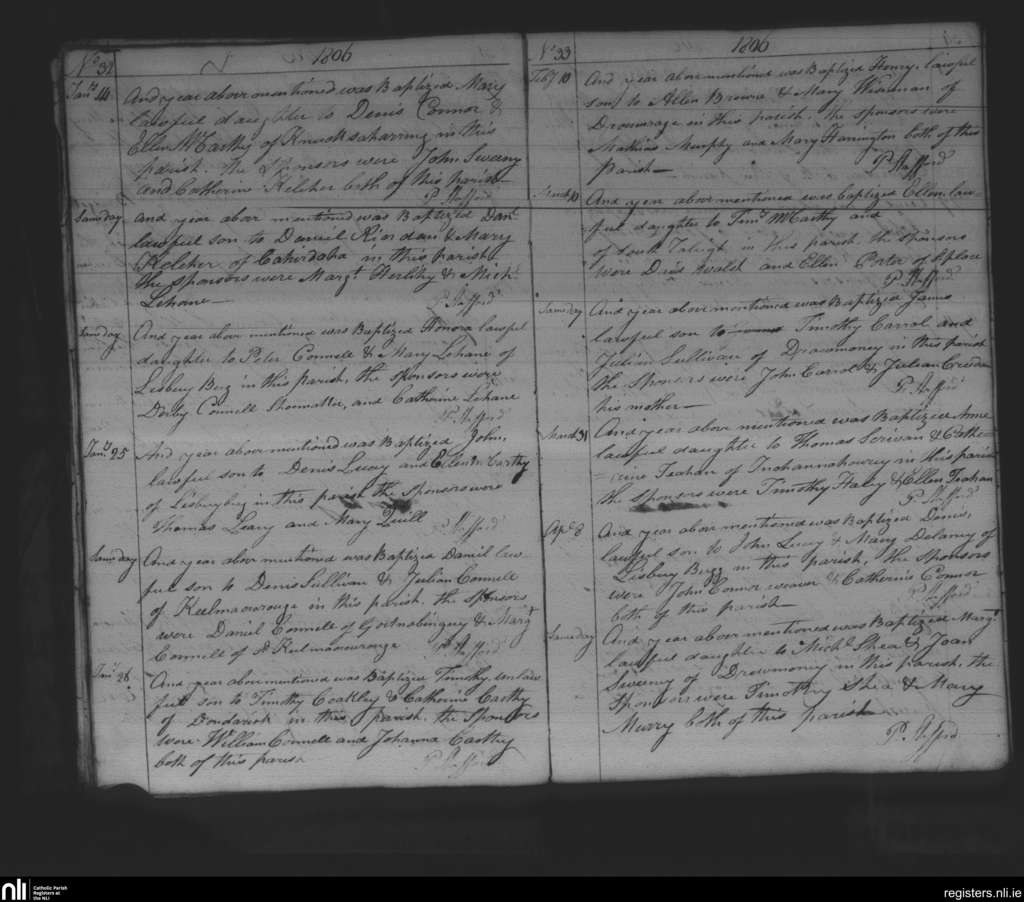 No 32
1806
Jany 14
And year above mentioned was Baptized Mary
lawful daughter to Denis Connor &
Ellen McCarthy of Knocksaharring in this
parish. the Sponsors were John Sweeny
and Catherine Kelcher both of this parish
P Stafford
Sameday
And year above mentioned was Baptized Danl
lawful son to Daniel Riordan & Mary
Kelcher of Cahirdaha in this parish
the Sponsors were Margt Herlihy & Michl
Lehane
P Stafford
Sameday
And year above mentioned was Baptized Honora lawful
daughter to Peter Connell & Mary Lehane of
Lisbuy Begg in this parish, the sponsors were
Derby Connell Shoemaker, and Catherine Lehane
P Stafford
Jany 25
And year above mentioned was Baptized John,
lawful son to Denis Lucy and Ellen McCarthy
of Lisbuybeg in this parish the Sponsors were
Thomas Leary and Mary Quill
P Stafford
Sameday
And year above mentioned was Baptized Daniel law
ful son to Denis Sullivan & Julian Connell
of Keelmacurouge in this parish. the sponsors
were Daniel Connell of Gortnabinguy & Margt
Connell of Keelmacurouge
P Stafford
Jany 28
And year above mentioned was Baptized Timothy, unlaw
ful son to Timothy Coakley & Catherine Carthy
of Dondarick in this parish. the Sponsors
were William Connell and Johanna Carthy
both of this parish
P Stafford
No 33
1806
Feby 10
And year above mentioned was Baptized Henry, lawful
son to Allen Browne & Mary Wiseman of
Dromrage in this parish. the sponsors were
Mathias Murphy and Mary Harrington both of this
Parish
P Stafford
March 10
And year above mentioned was baptized Ellen law
ful daughter to Timy McCarthy and
of South in this parish. the sponsors
were Denis Walsh and Ellen Porter of place
P Stafford
Sameday
And year above mentioned was Baptized James
lawful son to Timothy Carrol and
Julian Sullivan of Dromoney in this parish
the Sponsors were John Carrol & Julian Creedan
his mother
P Stafford
March 31
And year above mentioned was Baptized Anne
lawful daughter to Thomas Scrivan & Cathe
=rine Teahan of Inchannahowrey in this parish
the sponsors were Timothy Haley & Ellen Teahan
P Stafford
Apl 8
And year above mentioned was Baptized Denis,
lawful son to John Lucy & Mary Delaney of
Lisbuy Begg in this parish, the Sponsors
were John Connor weaver & Catherine Connor
both of this parish
P Stafford
Sameday
And year above mentioned was Baptized Margt
lawful daughter to Michl Shea & Joan
Sweeny of Dromoney in this parish, the
Sponsors were Timothy Shea & Mary
Murry both of this parish
P. Stafford
nli
Catholic Parish
Registers at
the NLI
registers.nli.ie